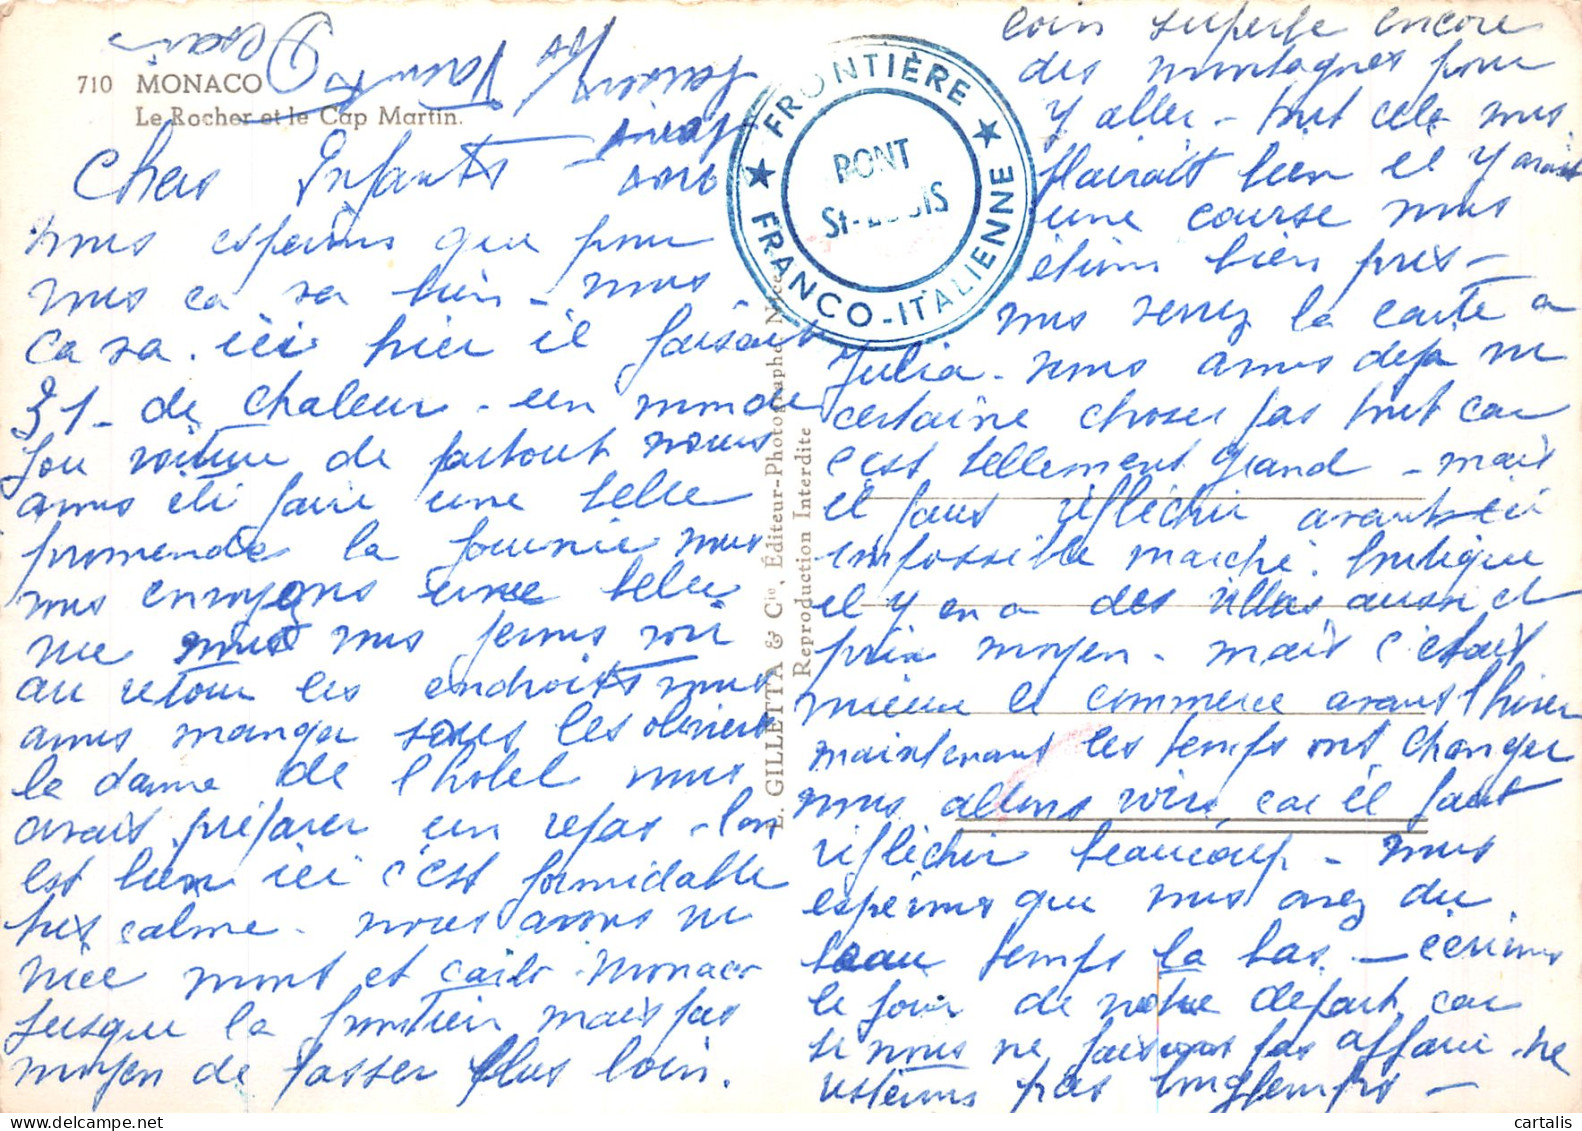 710 MONACO
Le Rocher et le Cap Martin.
Chers Enfants
nous esperons que pour
vous ca va bien - nous
ca va. ici hier il faisait
31 - de chaleur - un monde
fou voiture de partout nous
avons été faire une belle
promenade la journie nous
vous envoyons une belle
vue nous venons voir
au retour les endroits nous
avons manger sous les oliviers
la dame de l'hotel nous
avait préparer un repas - l'on
est bien ici c'est formidable
tres calme - nous avons vu
nice mont et carlo - Monaco
jusque la frontier mais pas
moyen de passer plus loin.
FRONTIÈRE
FRANCO-ITALIENNE
PONT
St-LOUIS
E. GILLETTA & Cie, Éditeur-Photographe Nice
Reproduction Interdite
coin superbe encore
des montagnes pour
y aller - tout cela nous
plairait bien il y avait
une course nous
étions bien pres -
vous verrez la carte a
Julia - nous avons deja vu
certaine choses pas tout car
c'est tellement grand - mais
il faut réflechir avant ici
impossible marché. boutique
il y en a des villas aussi et
prix moyen - mais c'etait
mieux le commerce avant l'hiver
maintenant les temps ont changer
nous allons voir, car il faut
réflechir beaucoup - nous
espérons que vous avez du
beau temps la bas - cérirons
le jour de notre depart car
si nous ne faisons pas affaire ne
resterons pas longtemps -